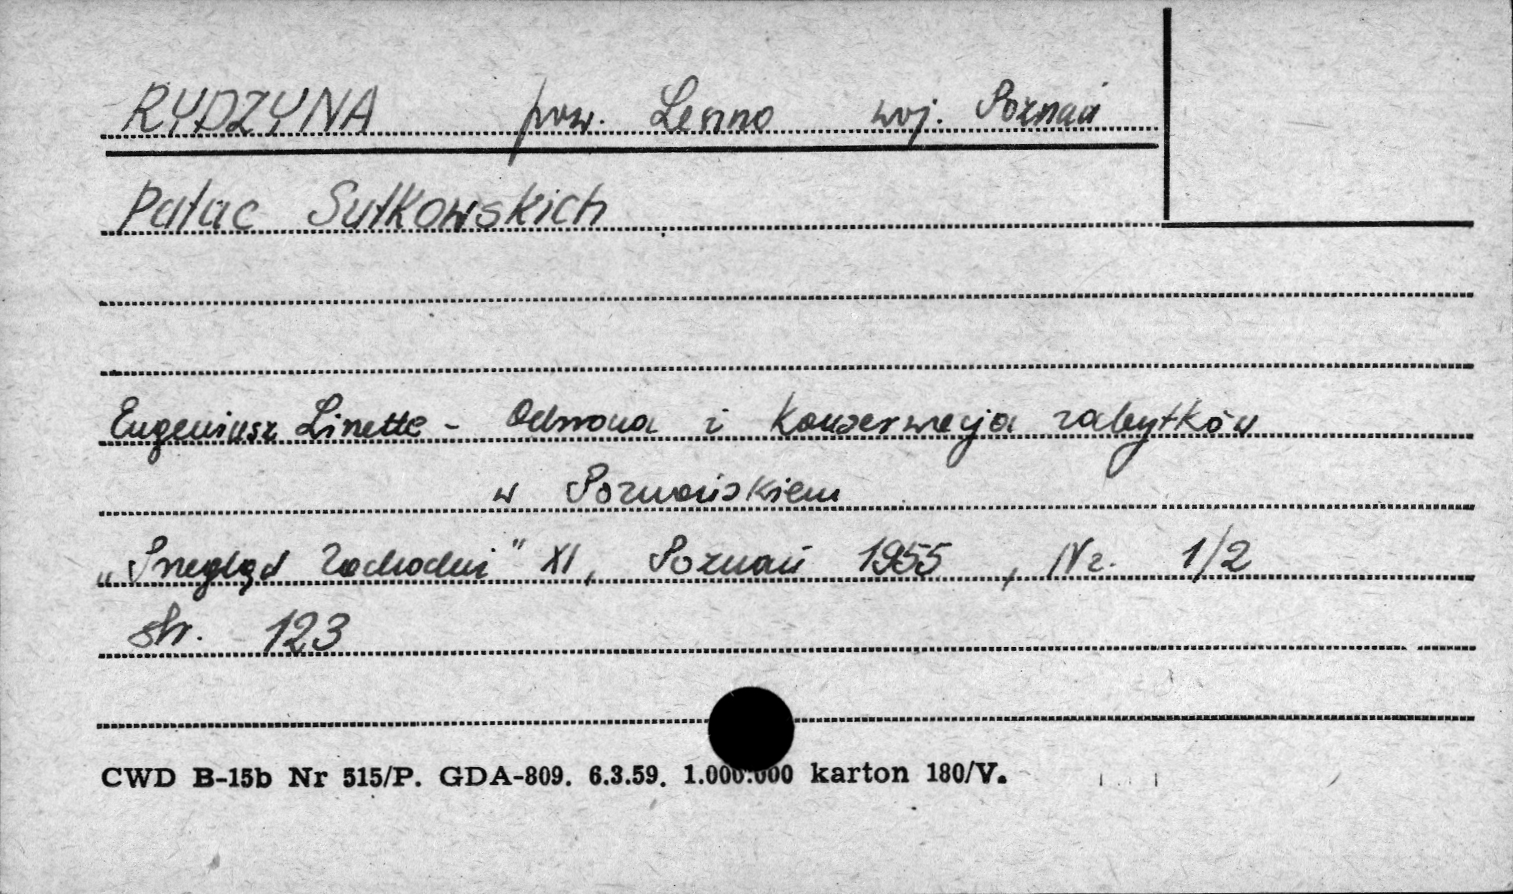 RYDZYNA pow. Leszno woj. Poznań
Pałac Sułkowskich
Eugeniusz Linette - Ochrona i konserwacja zabytków
w Poznańskiem
„Przegląd Zachodni" XI, Poznań 1955, Nr. 1/2
str. 123
CWD B-15b Nr 515/P. GDA-809. 6.3.59. 1.000.000 karton 180/V.